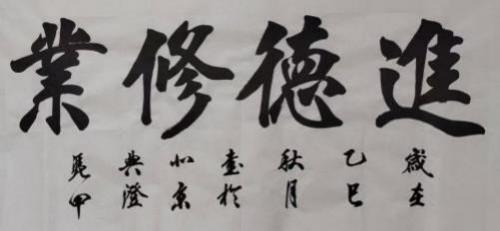 進德修業
歲在
乙巳
秋月
書於
北京
典澄